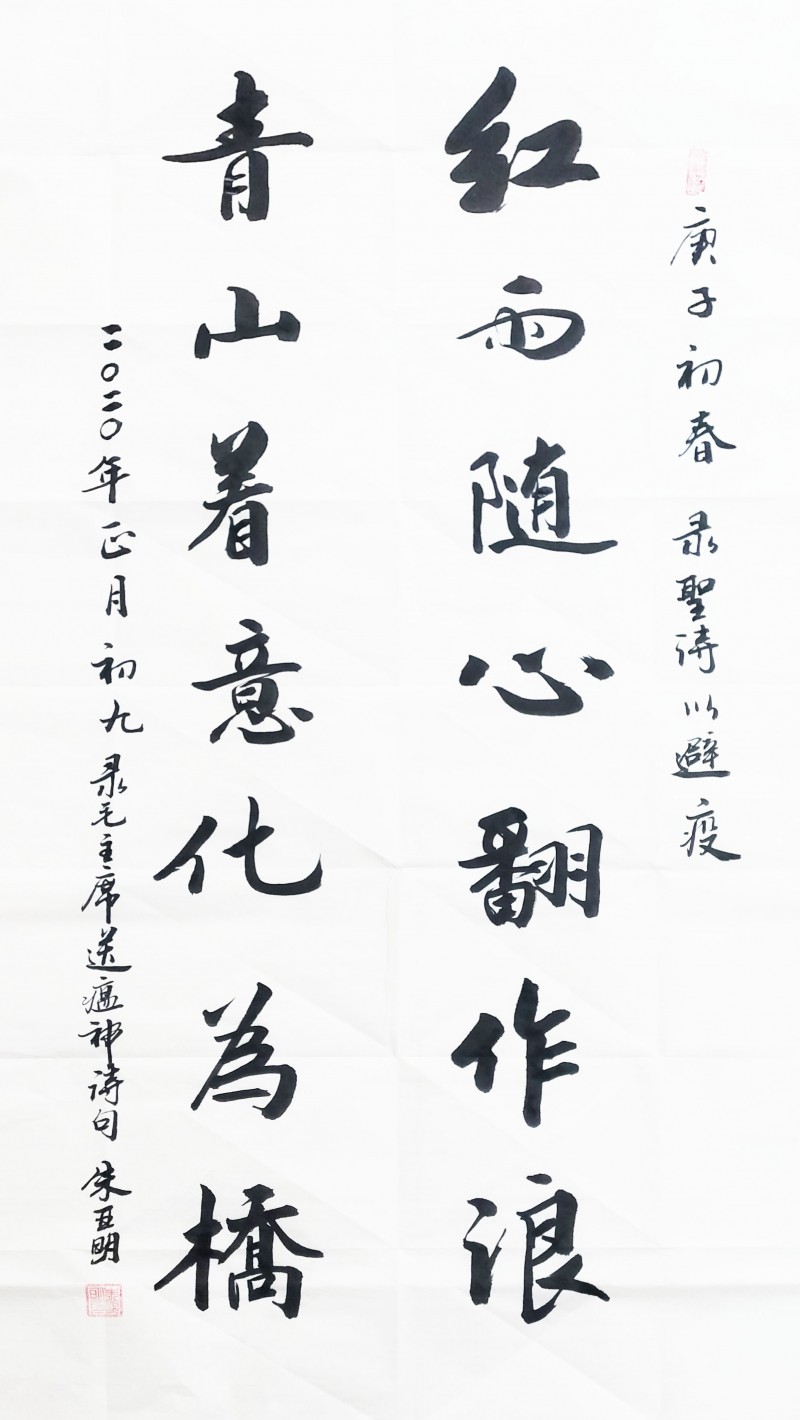 庚子初春 录聖诗以避疫
红雨随心翻作浪
青山着意化為橋
二〇二〇年正月初九 录毛主席送瘟神诗句 朱亚明